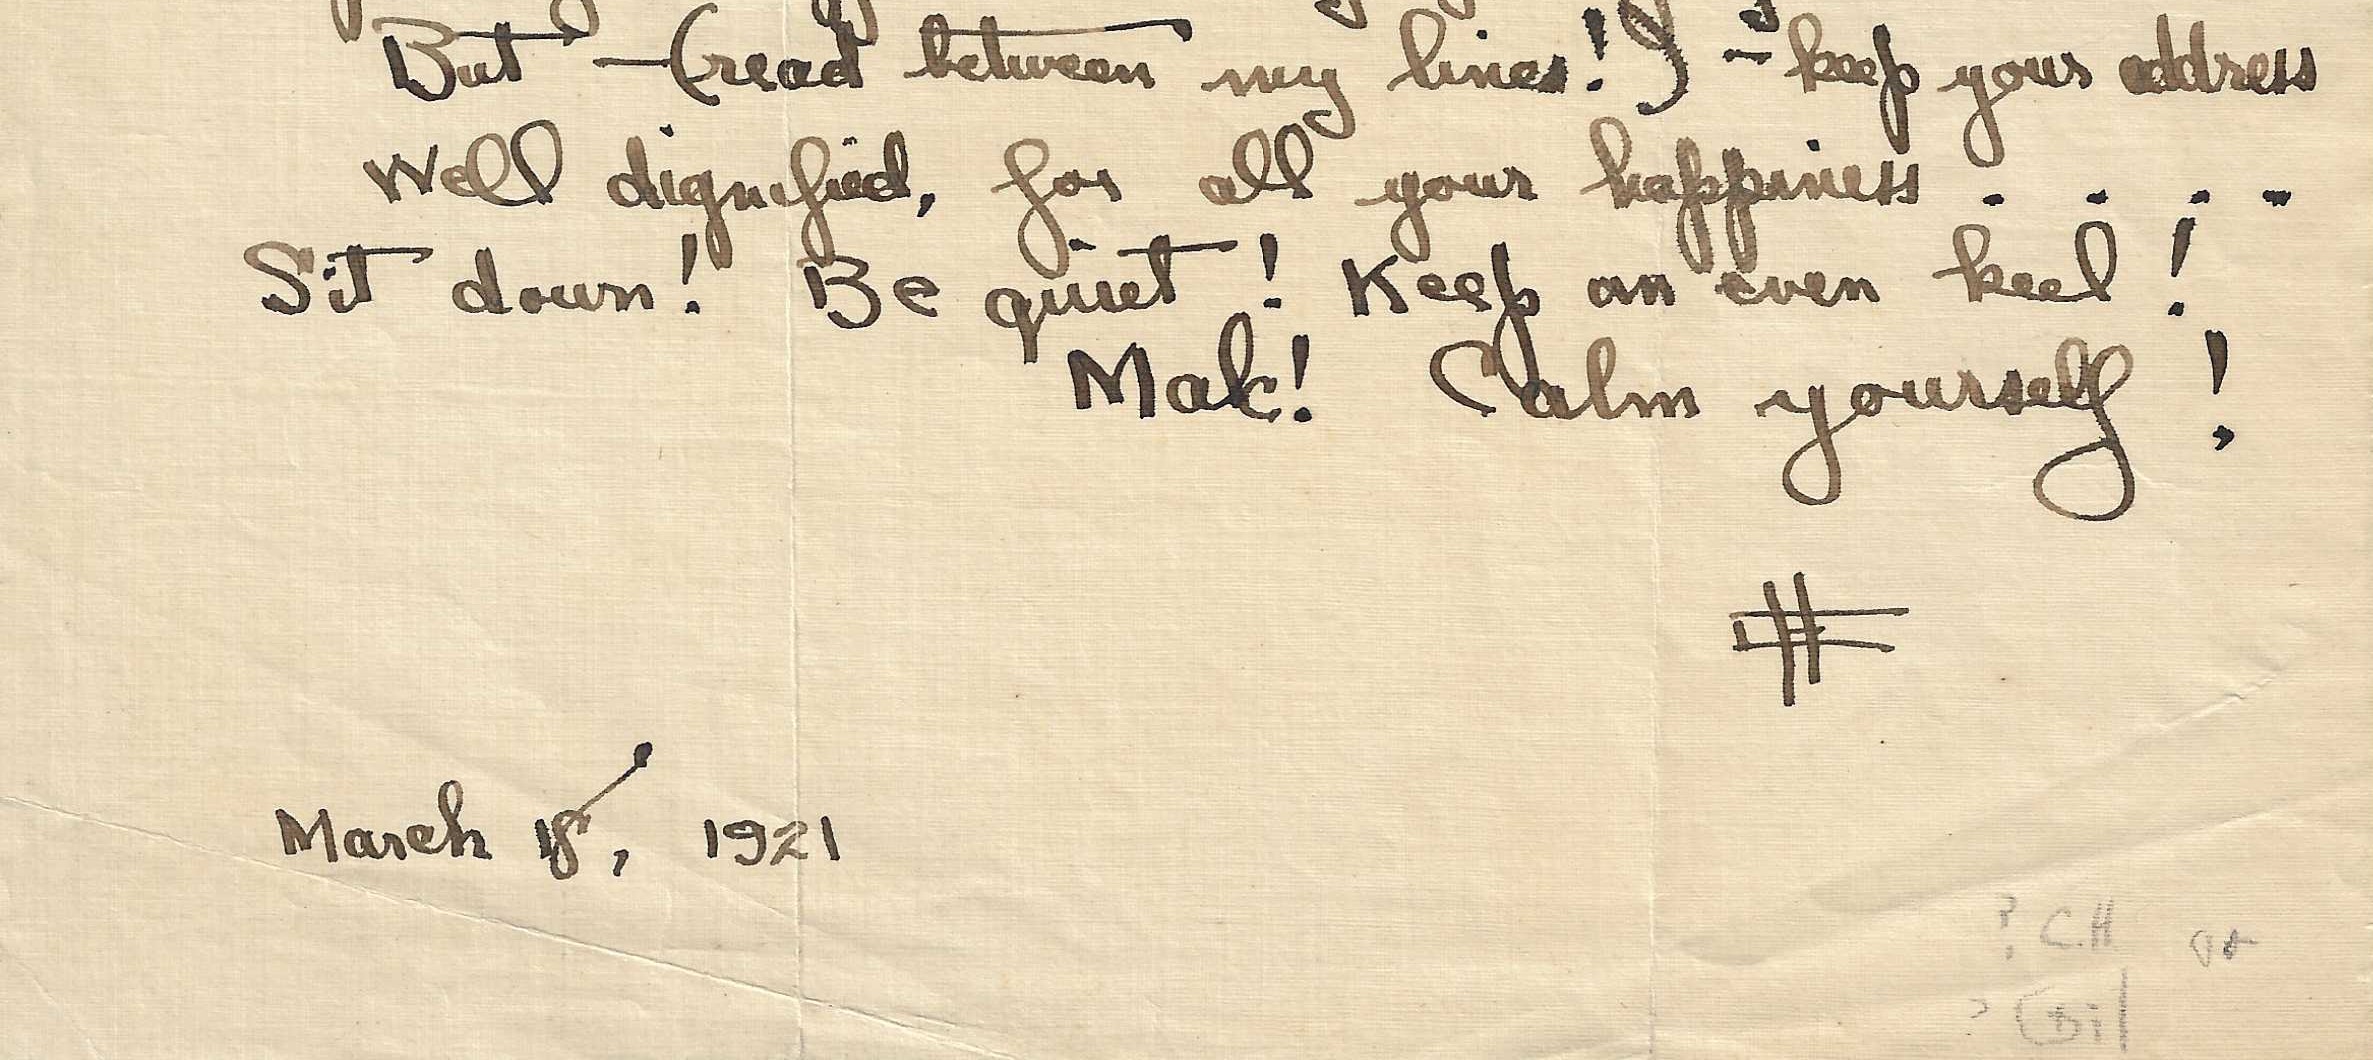 But —(read between my lines!) - keep your address
Well dignified, for all your happiness . . . .
Sit down! Be quiet! Keep an even keel!
Mak! Calm yourself!
March 18, 1921
? C.H